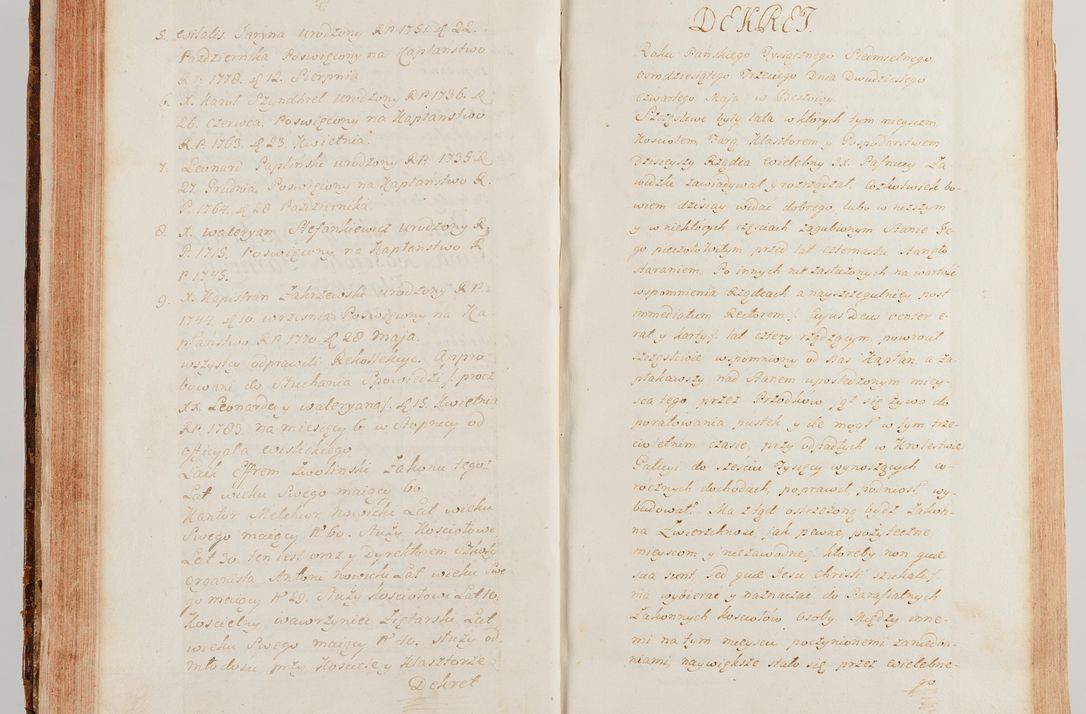 5. Witalis Jaryna urodzony R.P. 1751. d. 22.
Pazdziernika Poswięcony na Kapłanstwo
R.P. 1778. d. 12. Sierpnia
6. X. Karol Szyndhrel urodzony R.P. 1736. d.
26. Czerwca. Poswięcony na Kapłanstwo
R.P. 1763. d. 23. Kwietnia.
7. Leonard Papliński urodzony R.P. 1735. d.
27. Grudnia. Poswięcony na Kapłaństwo R.
P. 1764. d. 28 Pazdziernika.
8. X. Waleryan Stefankiewicz urodzony R.
P. 1715. Poswięcony na Kapłaństwo R.
P. 1745.
9. X. Kapistran Zakrzewski urodzony R.P.
1744. d. 10. Wrzesnia Poswięcony na Ka
płaństwo R.P. 1770. d. 28 Maja.
wszyscy odprawili Rekollekcye. Appro-
bowani do słuchania Spowiedzi /: procz
XX. Leonarda y Waleryana /. d. 15. Kwietnia
R.P. 1783. na miesięcy 6 w Stopnicy od
Officyała Wislickiego
Laik Effrem Zwolinski Zakonu tegoz
Lat wieku Swego maiący 60.
Kantor Melchior Nowicki Lat wieku
Swego maiący N° 60. Służy Kosciołowi
Lat 30. ten iest oraz y Dyrektorem Szkoły
Organista Antoni Nowicki Lat wieku Swe-
go maiący N° 29. Służy kosciołowi Lat 10.
Koscielny Wawrzyniec Ziętarski Lat
wieku Swego maiący N° 40. Służy od
młodosci przy Kosciele y Klasztorze
Dekret
DEKRET.
Roku Pańskiego Tysiącznego Siedmsetnego
Osmdziesiątego Trzeciego Dnia Dwudziestego
Czwartego Maja w Beszowy.
Szczęsliwe były lata w ktorych tym mieyscem
Kosciołem Parą. Klasztorem y Gospodarstwem
Dzisieyszy Rządca Wielebny JX. Pafnucy Za
widzki zawiadywał y rozrządzał. Cożkolwiek bo-
wiem dzisiay widać dobrego, lubo w niższym
y w niektórych częsciach zagubionym Stanie Je-
go pieczołowitym przed lat czternastu Stanęło
staraniem. Po innych nie zasłużonych na wartość
wspomnienia Rządcach a nayszczegulniey post
immediatum Rectorem /: Cujus Deus venter e-
rat y karty /. lat cztery rządzącym, powrocił
szczęsliwie wspomniony od Nas Kapłan a za-
płakawszy nad Stanem uposledzonym miey-
sca tego przez Przodków jął się żywo do
poratowania pustek y ile mogł w tym trze-
cioletnim czasie, przy odpadłych w Krolestwie
Galicyi do sześciu Tysięcy wynoszących co-
rocznych dochodach, poprawił, podniosł, wy-
budował. Ma ztąd ostrzeżoną bydź Zakon-
na Zwierzchność jak pewne, pożyteczne
mieyscom y niezawodne /: ktoreby non quæ
sua sunt, sed quæ Jesu Christi szukały /.
ma wybierać y naznaczać do Parafialnych
Zakonnych kosciołów osoby. Między inne-
mi na tym mieyscu poczynionemi zaniedba-
niami, naywiększe stało się przez Wielebne-
go